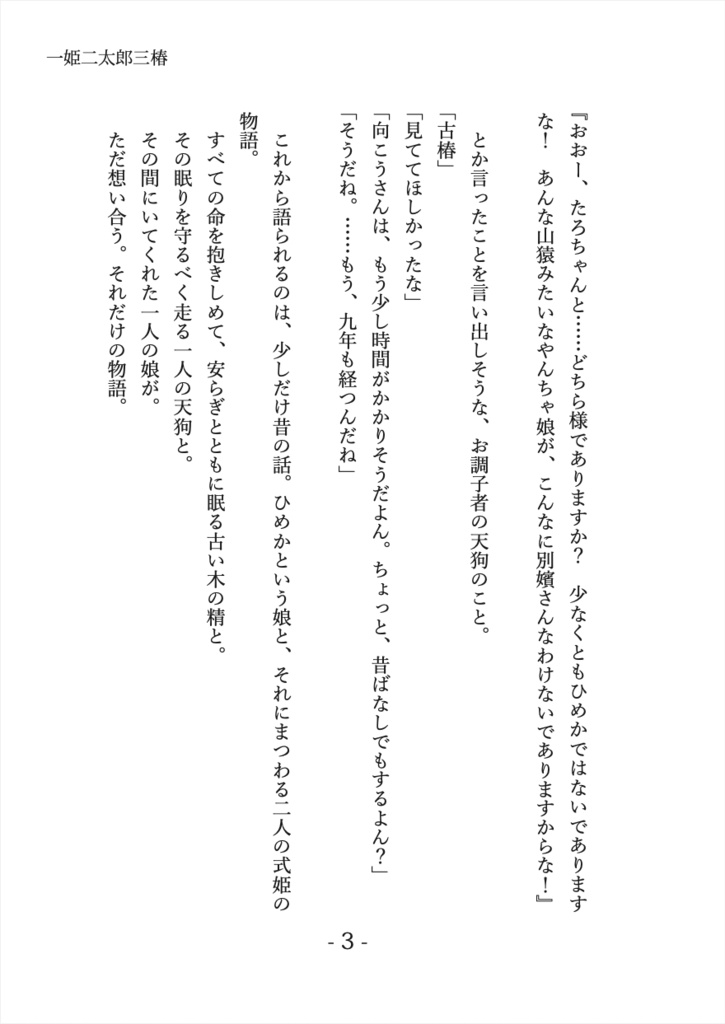 一姫二太郎三椿
『おおー、たろちゃんと……どちら様でありますか？　少なくともひめかではないであります
な！　あんな山猿みたいなやんちゃ娘が、こんなに別嬪さんなわけないでありますからな！』
とか言ったことを言い出しそうな、お調子者の天狗のこと。
「古椿」
「見ててほしかったな」
「向こうさんは、もう少し時間がかかりそうだよん。ちょっと、昔ばなしでもするよん？」
「そうだね。……もう、九年も経つんだね」
これから語られるのは、少しだけ昔の話。ひめかという娘と、それにまつわる二人の式姫の
物語。
すべての命を抱きしめて、安らぎとともに眠る古い木の精と。
その眠りを守るべく走る一人の天狗と。
その間にいてくれた一人の娘が。
ただ想い合う。それだけの物語。
- 3 -